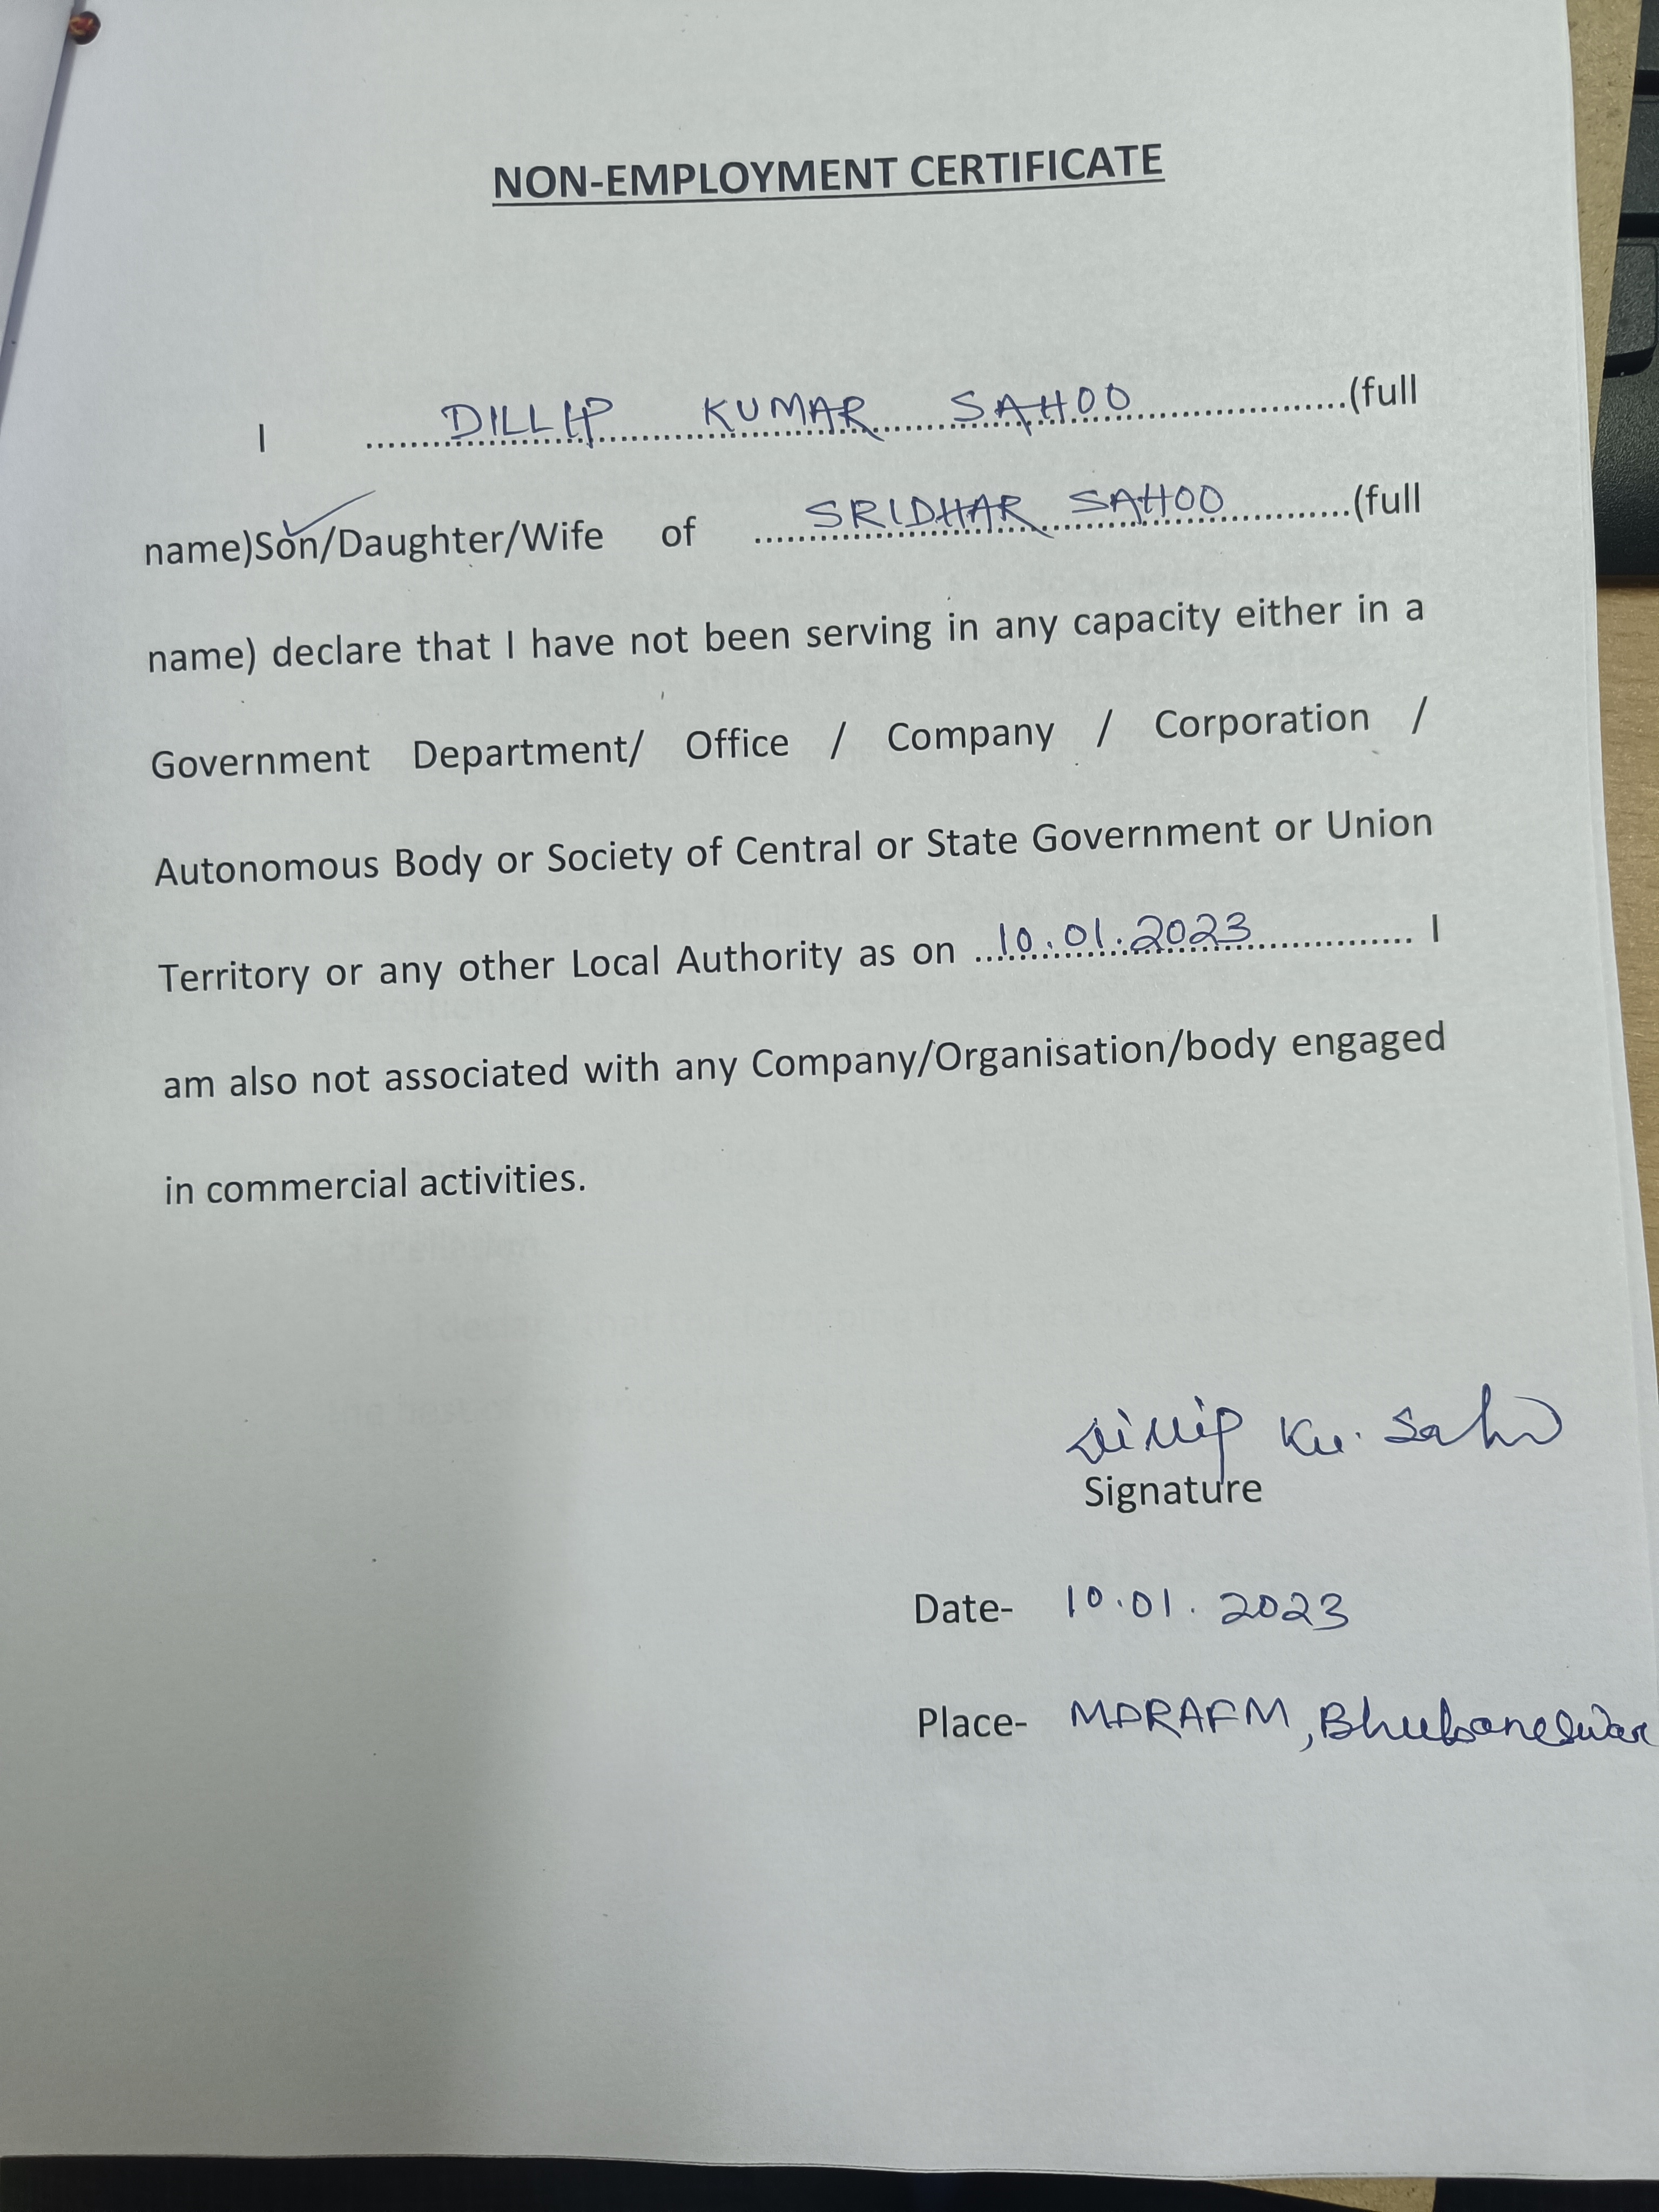 NON-EMPLOYMENT CERTIFICATE
I ........DILLIP KUMAR SAHOO........(full
name)Son/Daughter/Wife of ........SRIDHAR SAHOO........(full
name) declare that I have not been serving in any capacity either in a
Government Department/ Office / Company / Corporation /
Autonomous Body or Society of Central or State Government or Union
Territory or any other Local Authority as on ...10.01.2023........ I
am also not associated with any Company/Organisation/body engaged
in commercial activities.
Dillip Ku. Sahoo
Signature
Date- 10.01.2023
Place- MDRAFM, Bhubaneswar